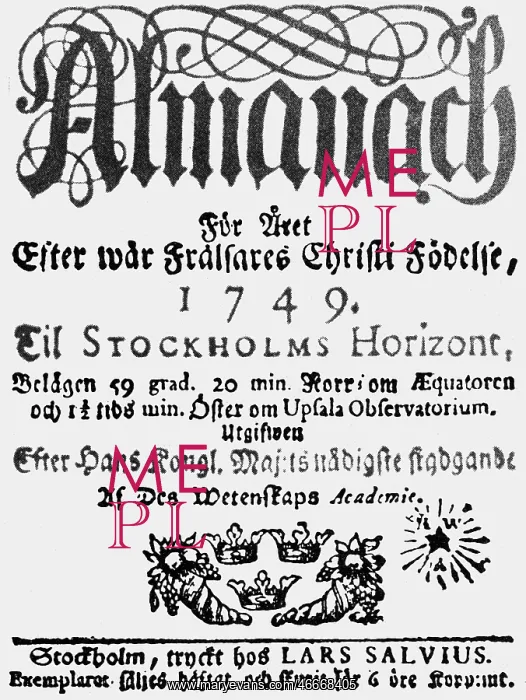 Almanach
För Året
Efter wår Frälsares Christi Födelse,
1749.
Til STOCKHOLMS Horizont,
Belägen 59 grad. 20 min. Norr om Æquatoren
och 1½ tids min. Öster om Upsala Observatorium.
Utgifwen
Efter Hans Kongl. Maj:ts nådigste stadgande
Af Des Wetenskaps Academie.
Stockholm, tryckt hos LARS SALVIUS.
Exemplaret säljes häftat och för 6 öre Kopp:mt.
ME
PL
ME
PL
www.maryevans.com/46668405